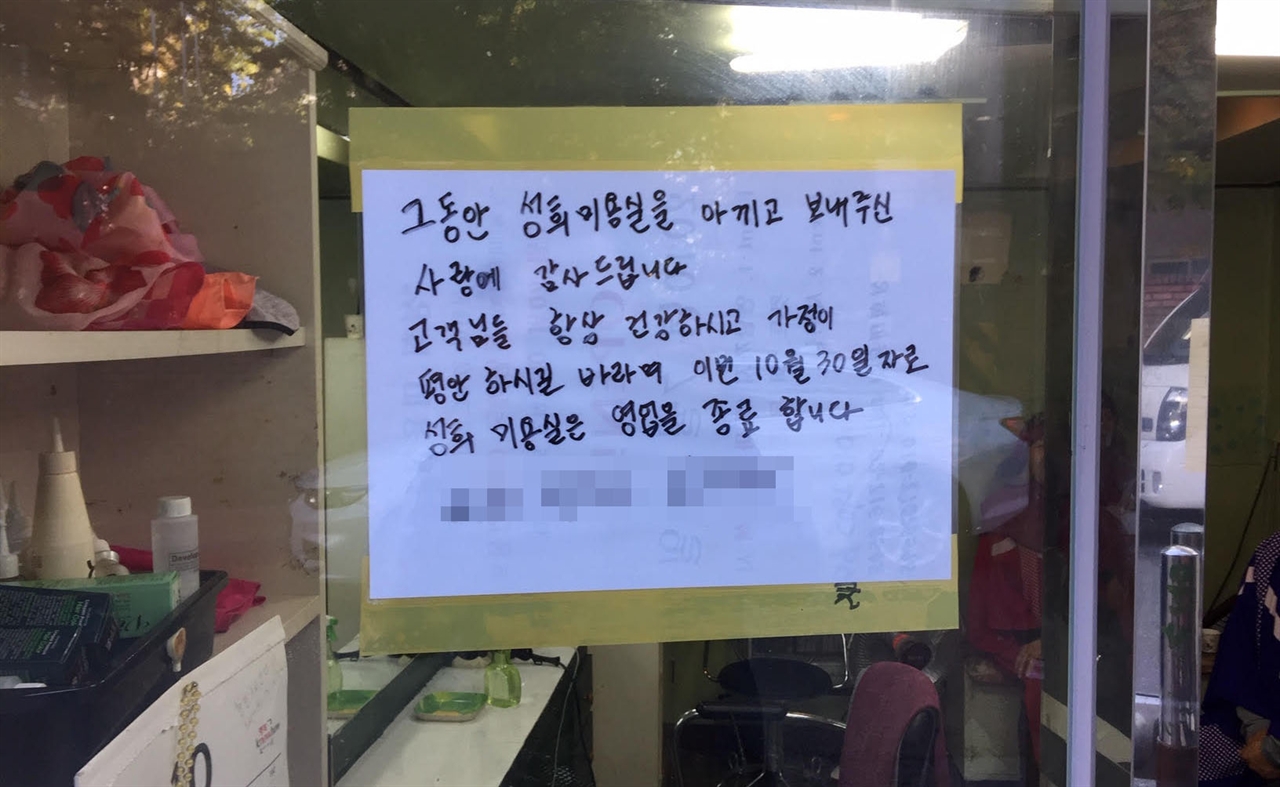 그동안 성희미용실을 아끼고 보내주신
사랑에 감사드립니다
고객님들 항상 건강하시고 가정이
평안 하시길 바라며 이번 10월 30일 자로
성희 미용실은 영업을 종료 합니다